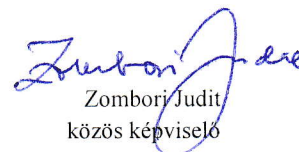 Zombori Judit
Zombori Judit
közös képviselő